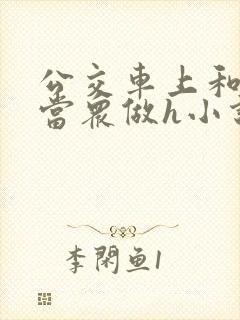 公交車上和
當眾做h小
李閑魚1